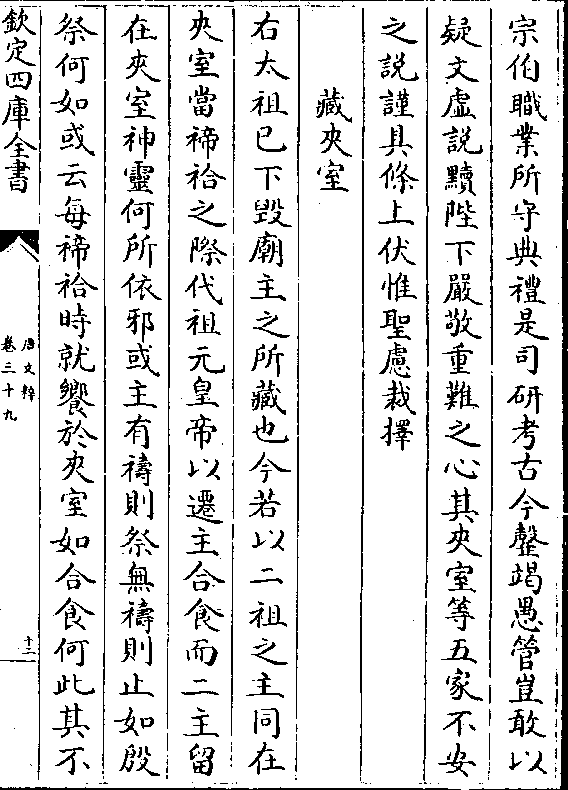 宗伯職業所守典禮是司研考古今罄竭愚管豈敢以
疑文虛説黷陛下嚴敬重難之心其夾室等五家不安
之説謹具條上伏惟聖慮裁擇
藏夾室
右太祖已下毀廟主之所藏也今若以二祖之主同在
夾室當禘祫之際代祖元皇帝以遷主合食而二主留
在夾室神靈何所依邪或主有禱則祭無禱則止如殷
祭何如或云每禘祫時就饗於夾室如合食何此其不
欽定四庫全書
唐文粹
卷三十九
十二